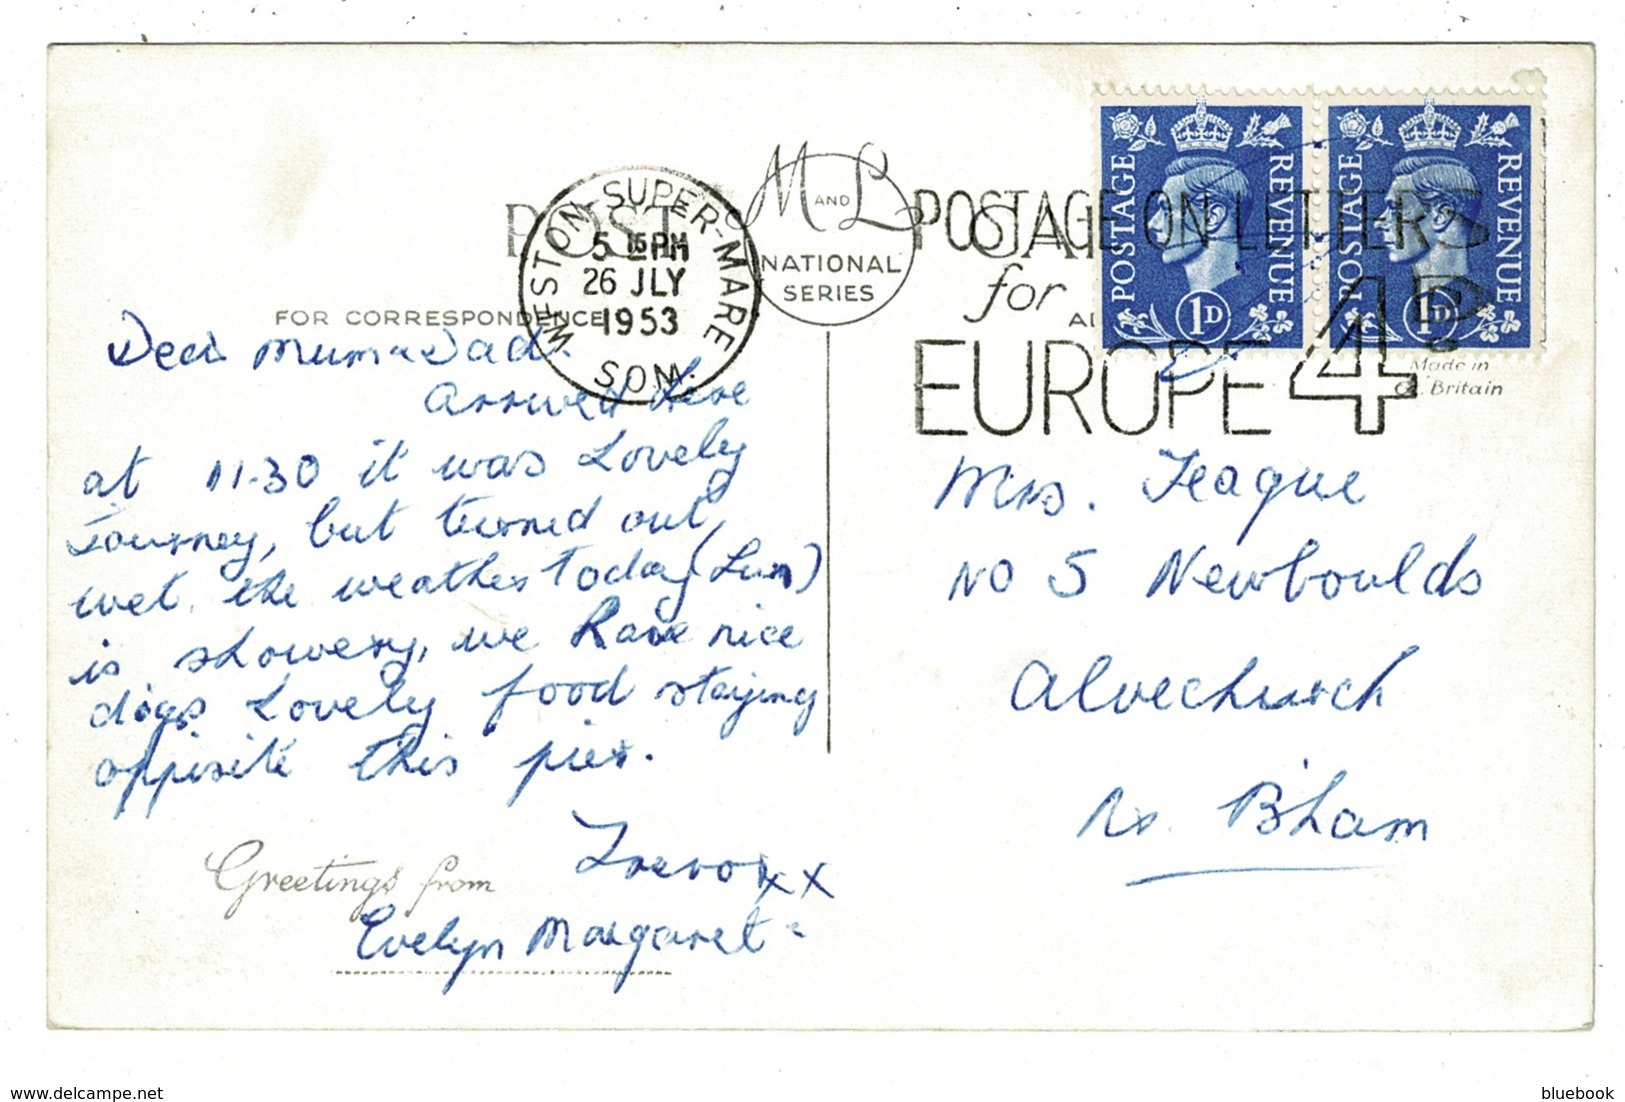 POST CARD
M AND L
NATIONAL
SERIES
FOR CORRESPONDENCE
WESTON-SUPER-MARE
5 15 PM
26 JLY
1953
SOM.
POSTAGE ON LETTERS
for
EUROPE 4D
POSTAGE REVENUE
1D
POSTAGE REVENUE
1D
Made in
Gt. Britain
Dear Mum & Dad.
Arrived here
at 11-30 it was Lovely
Journey, but turned out,
wet, the weather Today (Sun)
is showery, we Have nice
digs Lovely food staying
opposite this pier.
Trevor xx
Greetings from
Evelyn Margaret
Mrs. Teague
NO 5 Newboulds
Alvechurch
Nr. B'ham
delcampe.net
bluebook